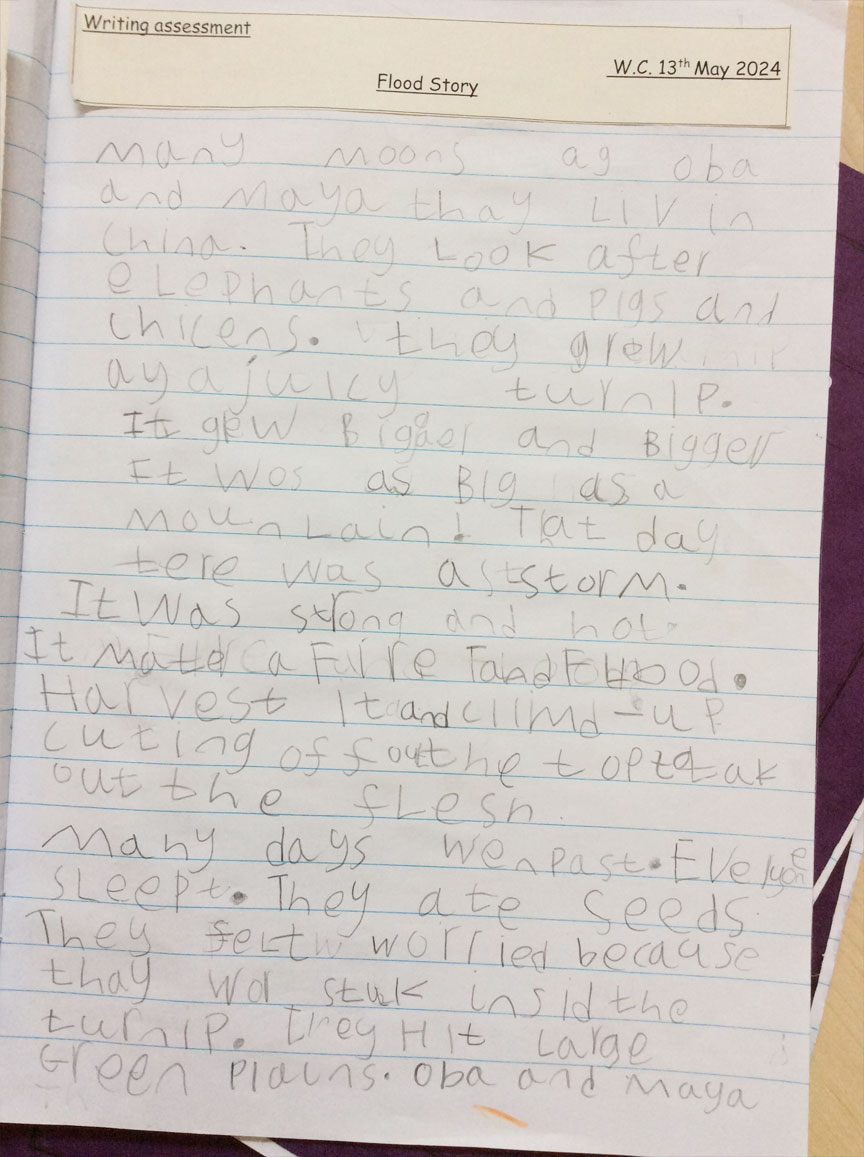 Writing assessment
W.C. 13th May 2024
Flood Story
many moons ag oba
and maya thay LIV in
China. They Look after
eLephants and pigs and
chicens. they grew
ay a juicy turnip.
It grew Bigger and Bigger
It wos as Big as a
mountain! That day
tere was a storm.
It Was strong and hot
It a Fire and Flood.
Harvest It and climd-up
cuting off the top tak
out the fLesh.
Many days wen past. Eveyone
sLeept. They ate seeds
They feLt worried because
thay wor stuk insid the
turnip. They Hit Large
Green plains. Oba and maya